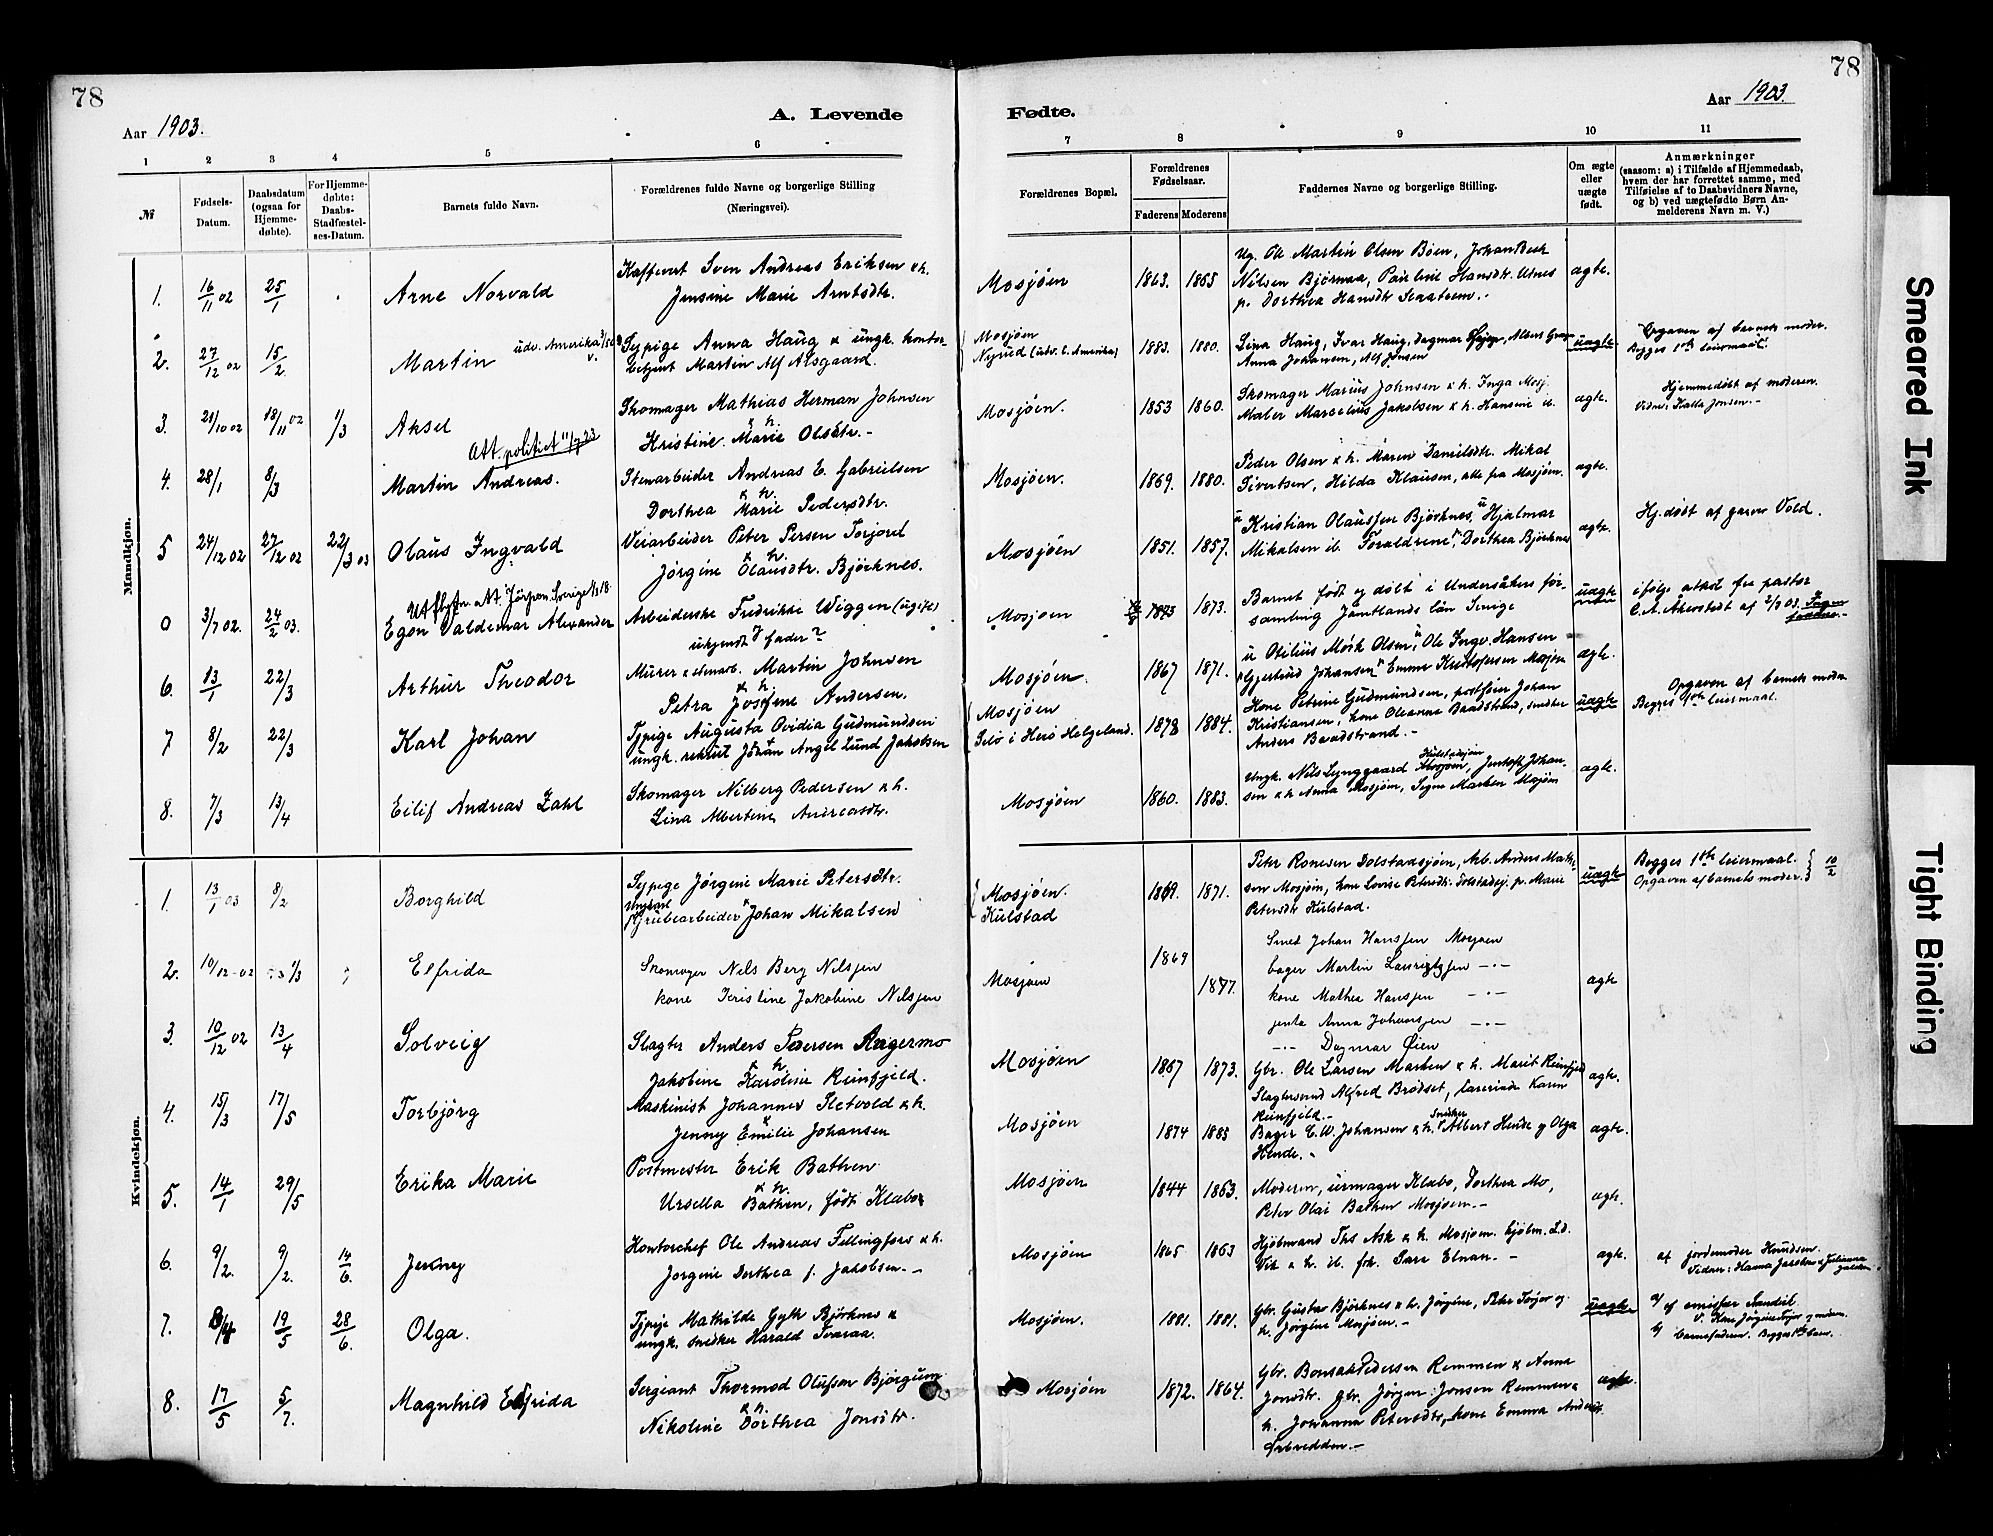 78
Aar 1903.
A. Levende
Fødte.
Aar 1903.
78
1 2 3 4 5 6 7 8 9 10 11
№
Fødsels-Datum.
Daabsdatum (ogsaa for Hjemme-døbte).
For Hjemme-døbte: Daabs-Stadfæstel-ses-Datum.
Barnets fulde Navn.
Forældrenes fulde Navne og borgerlige Stilling
(Næringsvei).
Forældrenes Bopæl.
Forældrenes Fødselsaar.
Faderens Moderens
Faddernes Navne og borgerlige Stilling.
Om ægte eller uægte født.
Anmærkninger
(saasom: a) i Tilfælde af Hjemmedaab,
hvem der har forrettet samme, med
Tilføielse af to Daabsvidners Navne,
og b) ved uægtefødte Børn An-
melderens Navn m. V.)
Mandkjøn.
1. 16/11 02 25/1 Arne Norvald
Kaffevert Sven Andreas Eriksen & h.
Jensine Marie Arntsdtr.
Mosjøen 1863. 1865
Ug. Ole Martin Olsen Böen, Johan
Nilsen Bjørnaa, Pauline Hansdtr. Utnes
p. Dorthea Hansdtr
ægte.
2. 27/12 02 15/2 Martin
udv. Amerika
Sypige Anna Haug & ungk. kontor-
betjent Martin Alf Alsgaard.
Mosjøen
(utv. t. Amerika)
1883. 1880.
Lina Haug, Ivar Haug, Dagmar
Anna Johansen, Alf Jensen
uægte
Opgaven af barnets moder.
Begges 1ste leiermaal.
3. 21/10 02 18/11 02 1/3 Aksel
Skomager Mathias Herman Johnsen
& h.
Kristine Marie Olsdtr.
Mosjøen. 1853 1860.
Skomager Marius Johnsen & h. Inga Mosj.
Maler Marcelius Jakobsen & h. Hansine ib.
ægte.
Hjemmedøbt af moderen.
Vidne: Kalla Jensen.
Att. politiet 11/7 23
4. 28/1 8/3 Martin Andreas.
Stenarbeider Andreas E. Gabrielsen
& h.
Dorthea Marie Pedersdtr.
Mosjøen. 1869. 1880.
Peder Olsen & h. Maren Danielsdtr. Mikal
Sivertsen, Hilda Klausen, alle fra Mosjøen.
ægte.
5 24/12 02 27/12 02 22/3 03 Olaus Ingvald
Veiarbeider Peter Persen Forjord
& h.
Jørgine Olausdtr. Bjørknes.
Mosjøen 1851. 1857.
Kristian Olaussen Bjørknes, Hjalmar
Mikalsen ib. Forældrene, Dorthea Bjørknes
ægte.
Hj.døbt af garver Vold.
0 3/7 02. 24/2 03. Egon Valdemar Alexander
Arbeiderske Fredrikke Wiggen (ugift)
ukjendt fader?
Mosjøen 1873.
Barnet født og døbt i Undersåkers för-
samling Jämtlands län Sverige
uægte
ifølge attest fra pastor
C. A. Åkerstedt af 2/3 03. Ingen
faddere.
6. 13/1 22/3 Arthur Theodor
Murer & stenarb. Martin Johnsen
& h.
Petra Josefine Andersen.
Mosjøen. 1867 1871.
Otilius Mörk Olsen, Ole Inge. Hansen
Gjertrud Johansen, Emma Kristofersen Mosjøen
ægte.
7 8/2 22/3 Karl Johan
Typige Augusta Ovidia Gudmundsen
ungk. rekrut Johan Angel Lund Jakobsen
Mosjøen
i Herø Helgeland.
1878 1884.
Kone Petrine Gudmundsen, postfører Johan
Kristiansen, kone Oleanna Baadstrand, snedker
Anders Baadstrand.
uægte
Opgaven af barnets moder
Begges 1ste leiermaal.
8. 7/3 13/4 Eilif Andreas Zahl
Skomager Nilberg Pedersen & h.
Lina Albertine Andreasdtr.
Mosjøen 1860. 1883.
Ungk. Nils Lynggaard, Jentoft Johan-
sen & h. Anna Mosjøen, Signe Marken Mosjøen
ægte.
Kvindekjøn.
1. 13/1 03 8/2 Borghild
Sypige Jørgine Marie Petersdtr.
Ungkarl
Grubearbeider Johan Mikalsen
Mosjøen.
Kulstad
1869. 1871.
Peter Ronesen Dolstadsjøen, Arb. Anders Mathi-
sen Mosjøen, kone Lovise Petersdtr. Dolstadsj. p. Marie
Petersdtr Kulstad.
uægte
Begges 1ste leiermaal.
Opgaven af barnets moder. 10/2
2. 10/02-02 1/3 Elfrida
Skomager Nels Berg Nilssen
kone Kristine Jakobine Nilssen
Mosjøen 1869 1877.
Smed Johan Hanssen Mosjøen
bager Martin Lauritzsen -"-
kone Mathea Hanssen -"-
jente Anna Johanssen -"-
-"- Dagmar Øien
ægte
3. 10/12 02 13/4 Solveig
Slagter Anders Pedersen Angermo
& h.
Jakobine Karoline Reinfjeld.
Mosjøen 1867 1873.
Gbr. Ole Larsen Marken & h. Marit Reinfjeld
Slagtersvend Alfred Brødset, lærerinde Karen
Reinfjeld.
ægte.
4. 15/3 17/5 Torbjörg
Maskinist Johannes Sletvold & h.
Jenny Emilie Johansen
Mosjøen 1874 1885
Bager C. W. Johansen & h. Snedker Albert Hende og Olga
Hende.
ægte.
5. 14/1 29/5 Erika Marie
Postmester Erik Bathen
& h.
Ursella Bathen, født Klæbo
Mosjøen 1844 1863.
Moderen, urmager Klæbo, Dorthea Mo,
Peter Olai Bathen Mosjøen.
ægte.
6. 9/2. 9/2. 14/6. Jenny
Kontorchef Ole Andreas Fellingfors & h.
Jørgine Dorthea f. Jakobsen.
Mosjøen 1865 1863
Kjøbmand Ths Ask & h. Mosjøen. Kjøbm. L.D.
Vik & h. ib. frk. Sara Elnan.
ægte.
af jordemoder Knudsen.
Vidner: Hanna Jakobsen & Julianna
7. 19/5 28/6. Olga.
Typige Mathilde Gyth Bjørknes &
ungk. snedker Harald Tveraa.
Mosjøen. 1881. 1881.
Gbr. Gustav Bjørknes & h. Jørgine, Peter Forjor og
h. Jørgine Mosjøen.
uægte
a) af emissær Sandvik
V. Kone Jørgine Forjor & moderen.
b) barnefaderen. Begges 1ste barn.
8. 17/5 5/7. Magnhild Elfrida
Sergiant Thormod Olufson Bjørgum
& h.
Nikoline Dorthea Jonsdtr.
Mosjøen 1872. 1864.
Gbr. Bonsak Pedersen Remmen & Anna
Jonsdtr. Gbr. Jørgen Jonsen Remmen &
h. Johanna Petersdtr, kone Emma Anders
ægte.
Smeared Ink
Tight Binding